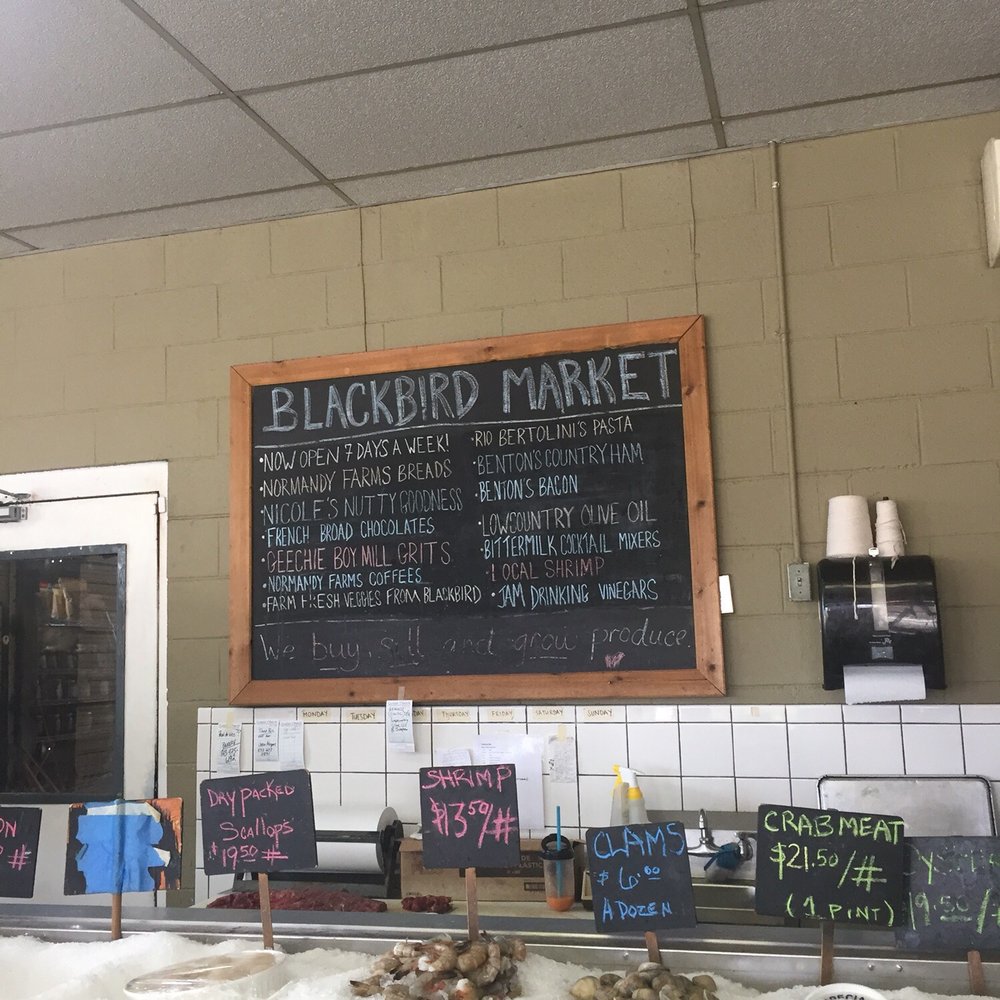 BLACKBIRD MARKET
•NOW OPEN 7 DAYS A WEEK!
•NORMANDY FARMS BREADS
•NICOLE'S NUTTY GOODNESS
•FRENCH BROAD CHOCOLATES
•GEECHIE BOY MILL GRITS
•NORMANDY FARMS COFFEES
•FARM FRESH VEGGIES FROM BLACKBIRD
•RIO BERTOLINI'S PASTA
•BENTON'S COUNTRY HAM
•BENTON'S BACON
•LOWCOUNTRY OLIVE OIL
•BITTERMILK COCKTAIL MIXERS
•LOCAL SHRIMP
•JAM DRINKING VINEGARS
We buy, sell and grow produce
MONDAY
TUESDAY
THURSDAY
FRIDAY
SATURDAY
SUNDAY
DRY PACKED
Scallops
$19.50 #
SHRIMP
$13.50/#
CLAMS
$6.00
A DOZEN
CRABMEAT
$21.50/#
(1 PINT)
19.50/#